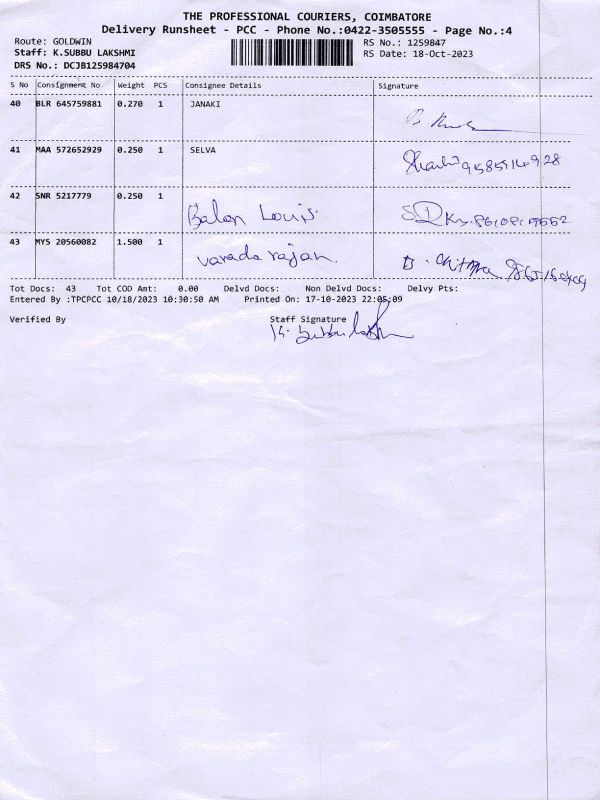 THE PROFESSIONAL COURIERS, COIMBATORE
Delivery Runsheet - PCC - Phone No.:0422-3505555 - Page No.:4
Route: GOLDWIN
RS No.: 1259847
Staff: K.SUBBU LAKSHMI
RS Date: 18-Oct-2023
DRS No.: DCJB125984704
S No Consignment No Weight PCS Consignee Details Signature
40 BLR 645759881 0.270 1 JANAKI
41 MAA 572652929 0.250 1 SELVA
42 SNR 5217779 0.250 1 Balan Louis
43 MYS 20560082 1.500 1 varada rajan.
Tot Docs: 43 Tot COD Amt: 0.00 Delvd Docs: Non Delvd Docs: Delvy Pts:
Entered By :TPCPCC 10/18/2023 10:30:50 AM Printed On: 17-10-2023 22:05:09
Verified By Staff Signature